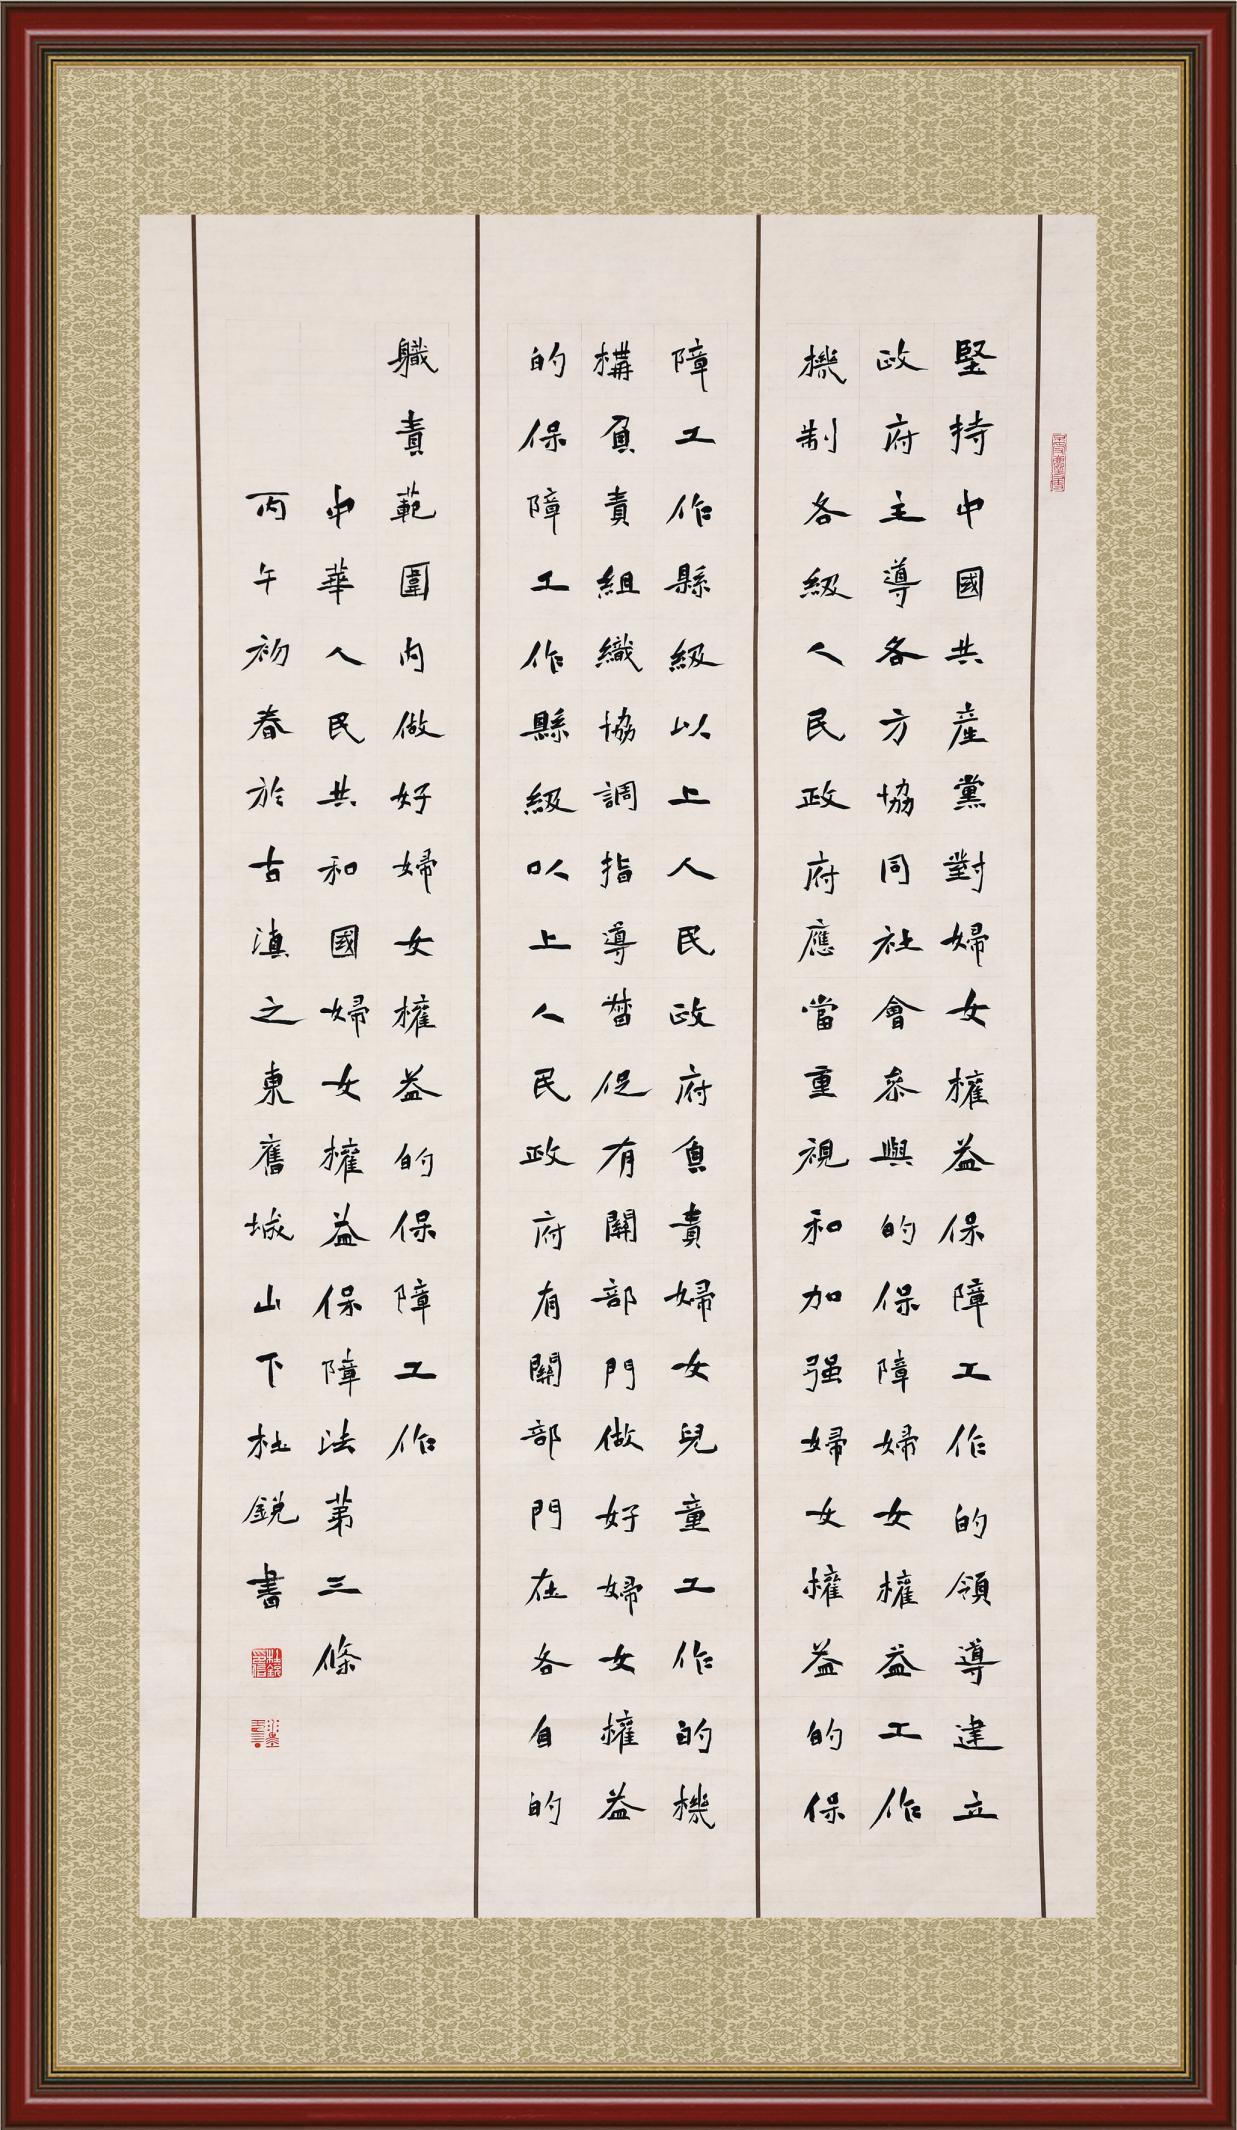 堅持中國共産黨對婦女權益保障工作的領導建立
政府主導各方協同社會參與的保障婦女權益工作
機制各級人民政府應當重視和加强婦女權益的保
障工作縣級以上人民政府負責婦女兒童工作的機
構負責組織協調指導督促有關部門做好婦女權益
的保障工作縣級以上人民政府有關部門在各自的
職責範圍内做好婦女權益的保障工作
中華人民共和國婦女權益保障法第三條
丙午初春於古滇之東舊城山下杜銳書